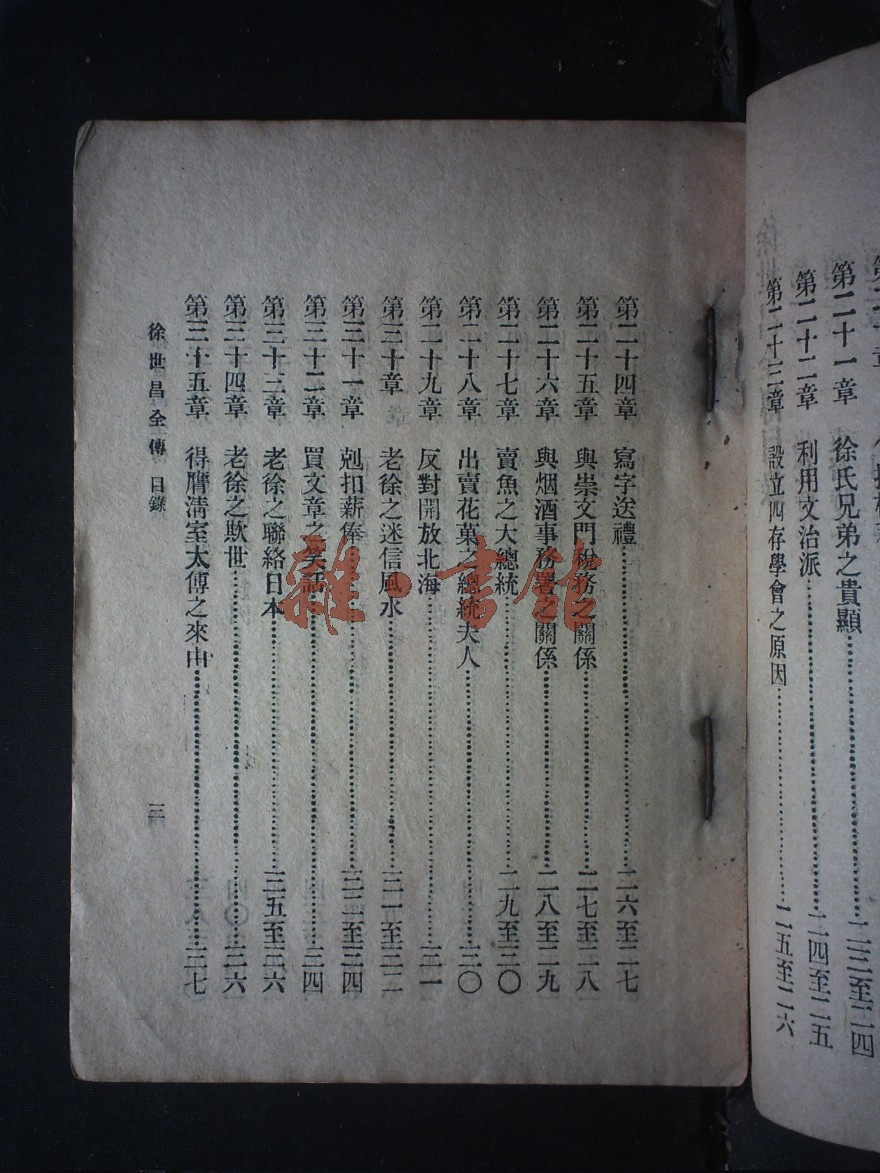 第二十一章　徐氏兄弟之貴顯……二三至二四
第二十二章　利用文治派……二四至二五
第二十三章　設立四存學會之原因……二五至二六
第二十四章　寫字送禮……二六至二七
第二十五章　與崇文門稅務之關係……二七至二八
第二十六章　與烟酒事務署之關係……二八至二九
第二十七章　賣魚之大總統……二九至三〇
第二十八章　出賣花菓之總統夫人……三〇
第二十九章　反對開放北海……三一
第三十章　老徐之迷信風水……三一至三二
第三十一章　剋扣薪俸……三二至三四
第三十二章　買文章之笑話……三四
第三十三章　老徐之聯絡日本……三五至三六
第三十四章　老徐之欺世……三六
第三十五章　得膺淸室太傅之來由……三七
徐世昌全傳　目錄　三
雜·書館